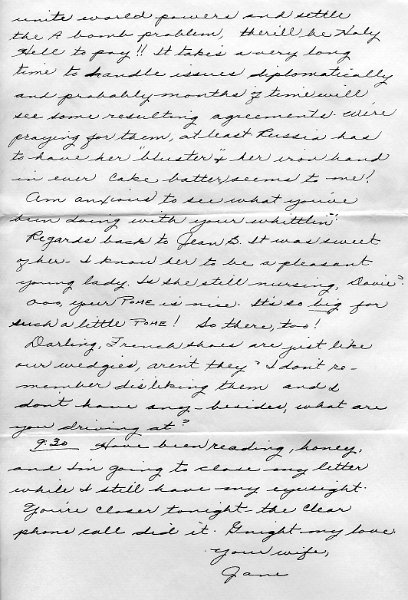 unite world powers and settle
the A bomb problem, there'll be Holy
Hell to pay!! It takes a very long
time to handle issues diplomatically
and probably months of time will
see some resulting agreements. We're
praying for them, at least Russia has
to have her "bluster" & her iron hand
in ever cake batter, seems to me!
Am anxious to see what you've
been doing with your whittlin'.
Regards back to Jean B. It was sweet
of her. I know her to be a pleasant
young lady. Is she still nursing, Davie?
Ooo, your POME is nice. It's so big for
such a little POME! So there, too!
Darling, French shoes are just like
our wedgies, aren't they? I don't re-
member disliking them and I
don't have any - besides, what are
you driving at?
9:30 Have been reading, honey,
and I'm going to close my letter
while I still have my eyesight.
You're closer tonight - the clear
phone call did it. G'night my love
Your wife,
Jane